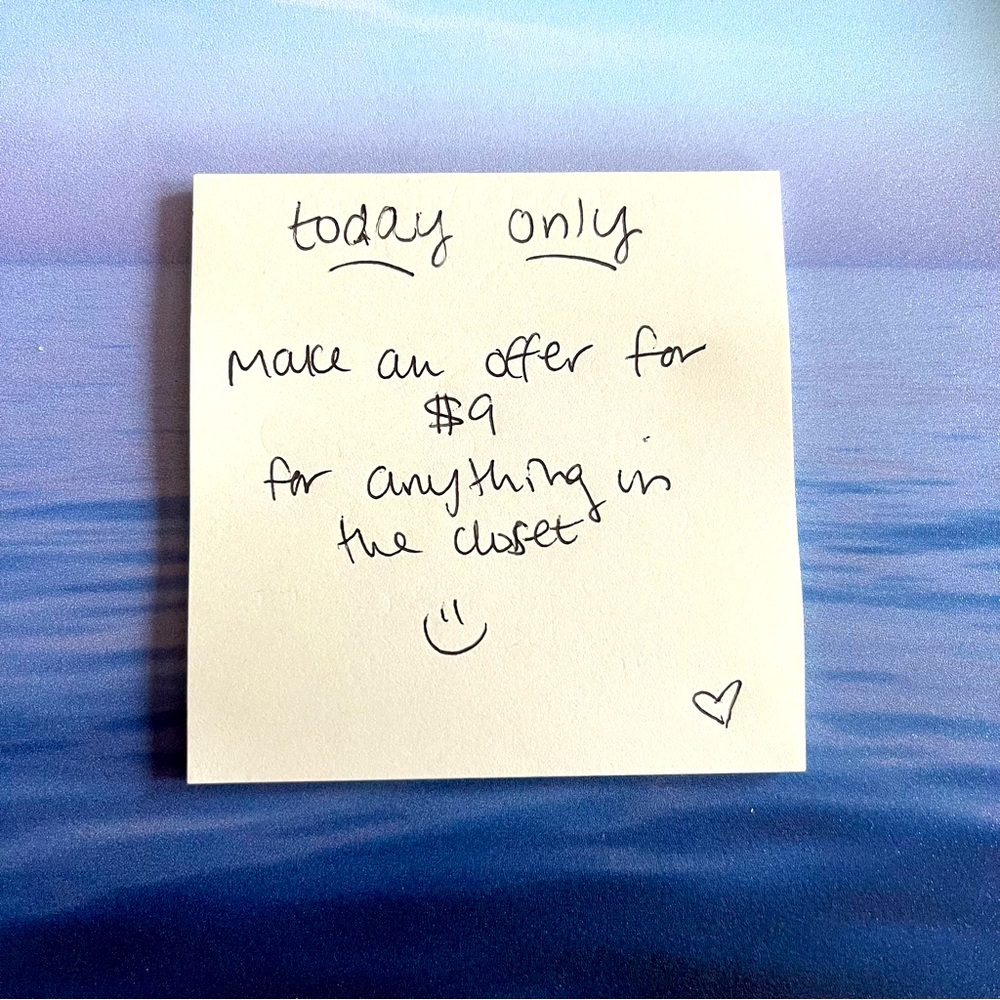 today only
Make an offer for
$9
for anything in
the closet